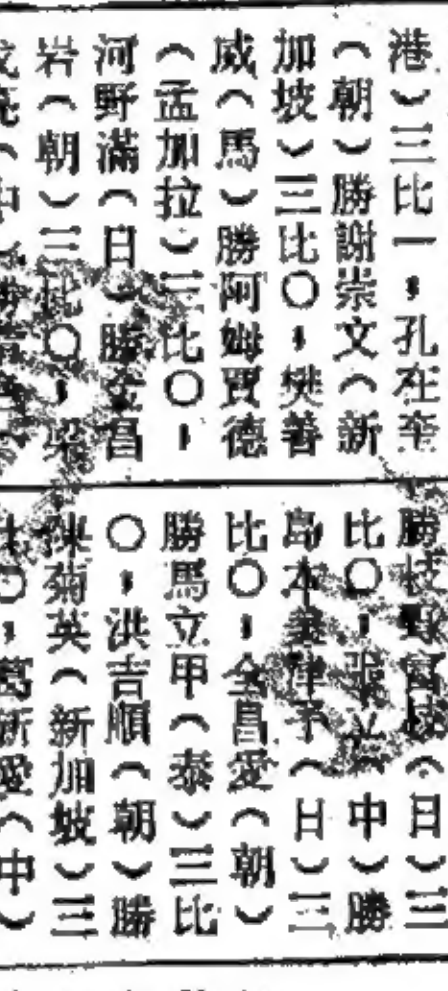 港）三比一，孔在奎
（朝）勝謝崇文（新
加坡）三比〇，樊善
威（馬）勝阿姆賈德
（孟加拉）三比〇，
河野滿（日）勝　昌
岩（朝）三比〇，梁
（中）勝
勝枝野富枝（日）三
比〇，張立（中）勝
島本美津予（日）三
比〇，全昌愛（朝）
勝馬立甲（泰）三比
〇，洪吉順（朝）勝
陳菊英（新加坡）三
比〇，葛新愛（中）